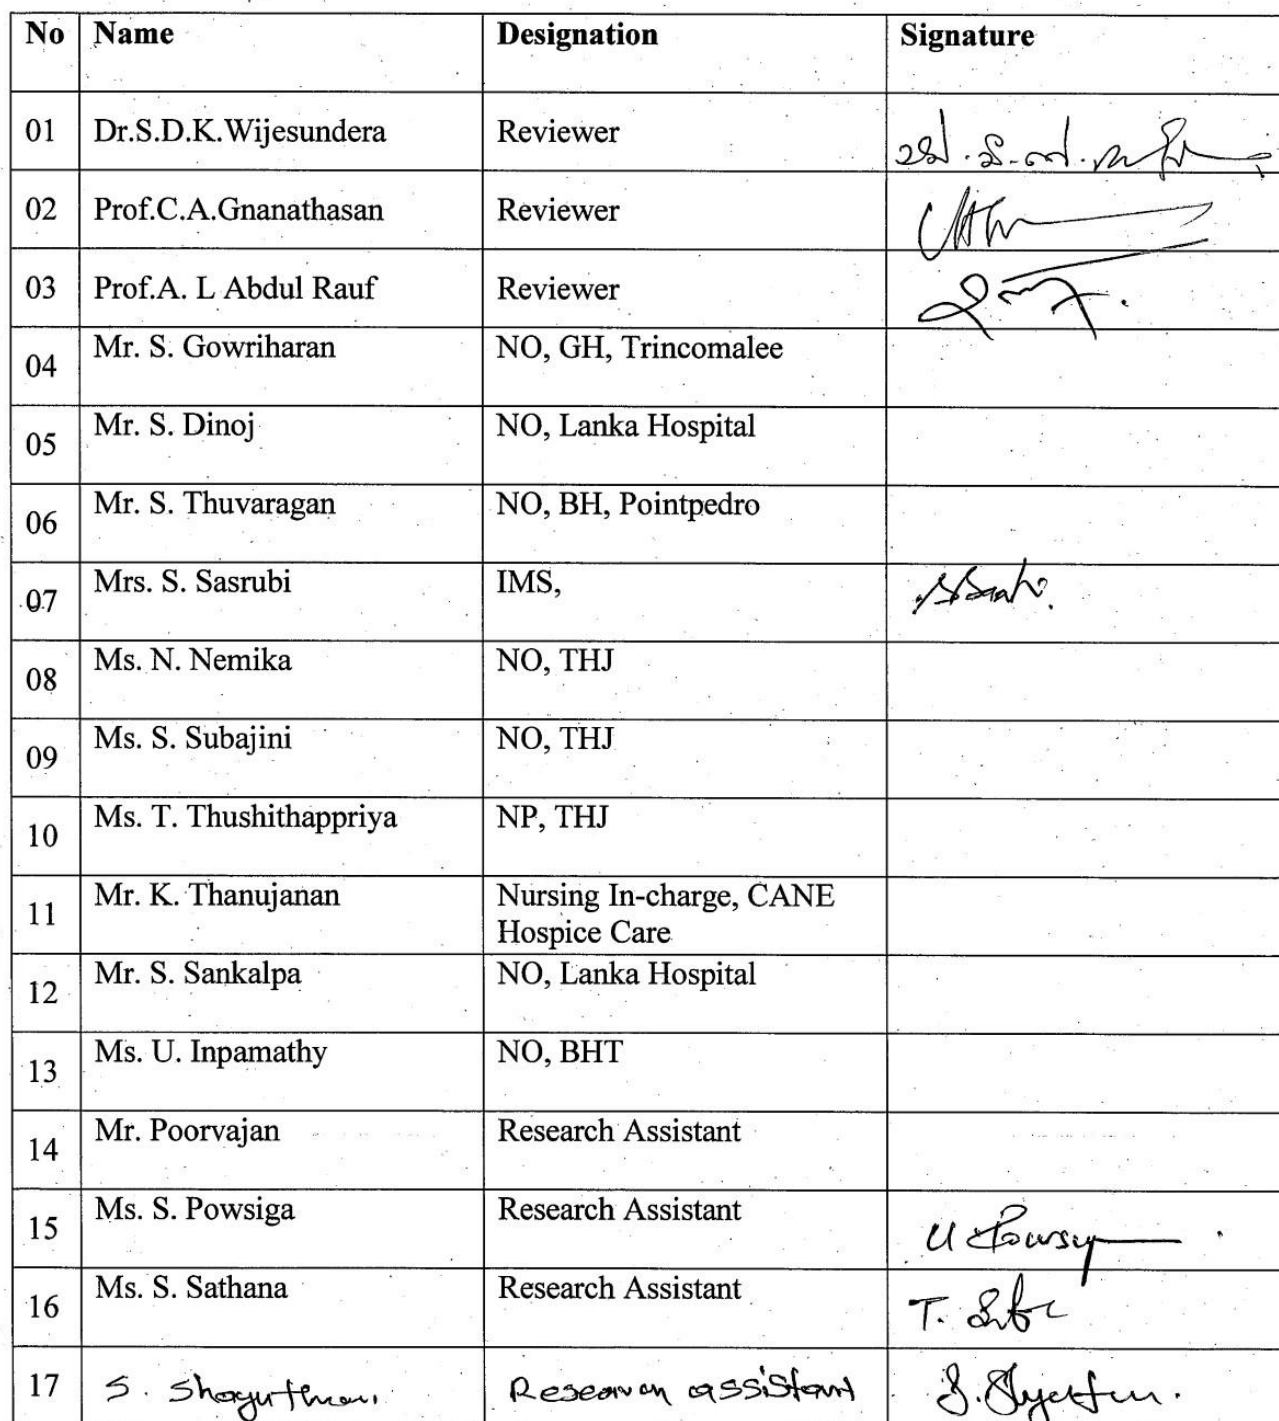 No Name Designation Signature
01 Dr.S.D.K.Wijesundera Reviewer
02 Prof.C.A.Gnanathasan Reviewer
03 Prof.A. L Abdul Rauf Reviewer
04 Mr. S. Gowriharan NO, GH, Trincomalee
05 Mr. S. Dinoj NO, Lanka Hospital
06 Mr. S. Thuvaragan NO, BH, Pointpedro
07 Mrs. S. Sasrubi IMS,
08 Ms. N. Nemika NO, THJ
09 Ms. S. Subajini NO, THJ
10 Ms. T. Thushithappriya NP, THJ
11 Mr. K. Thanujanan Nursing In-charge, CANE
Hospice Care
12 Mr. S. Sankalpa NO, Lanka Hospital
13 Ms. U. Inpamathy NO, BHT
14 Mr. Poorvajan Research Assistant
15 Ms. S. Powsiga Research Assistant
16 Ms. S. Sathana Research Assistant
17 S. Research assistant